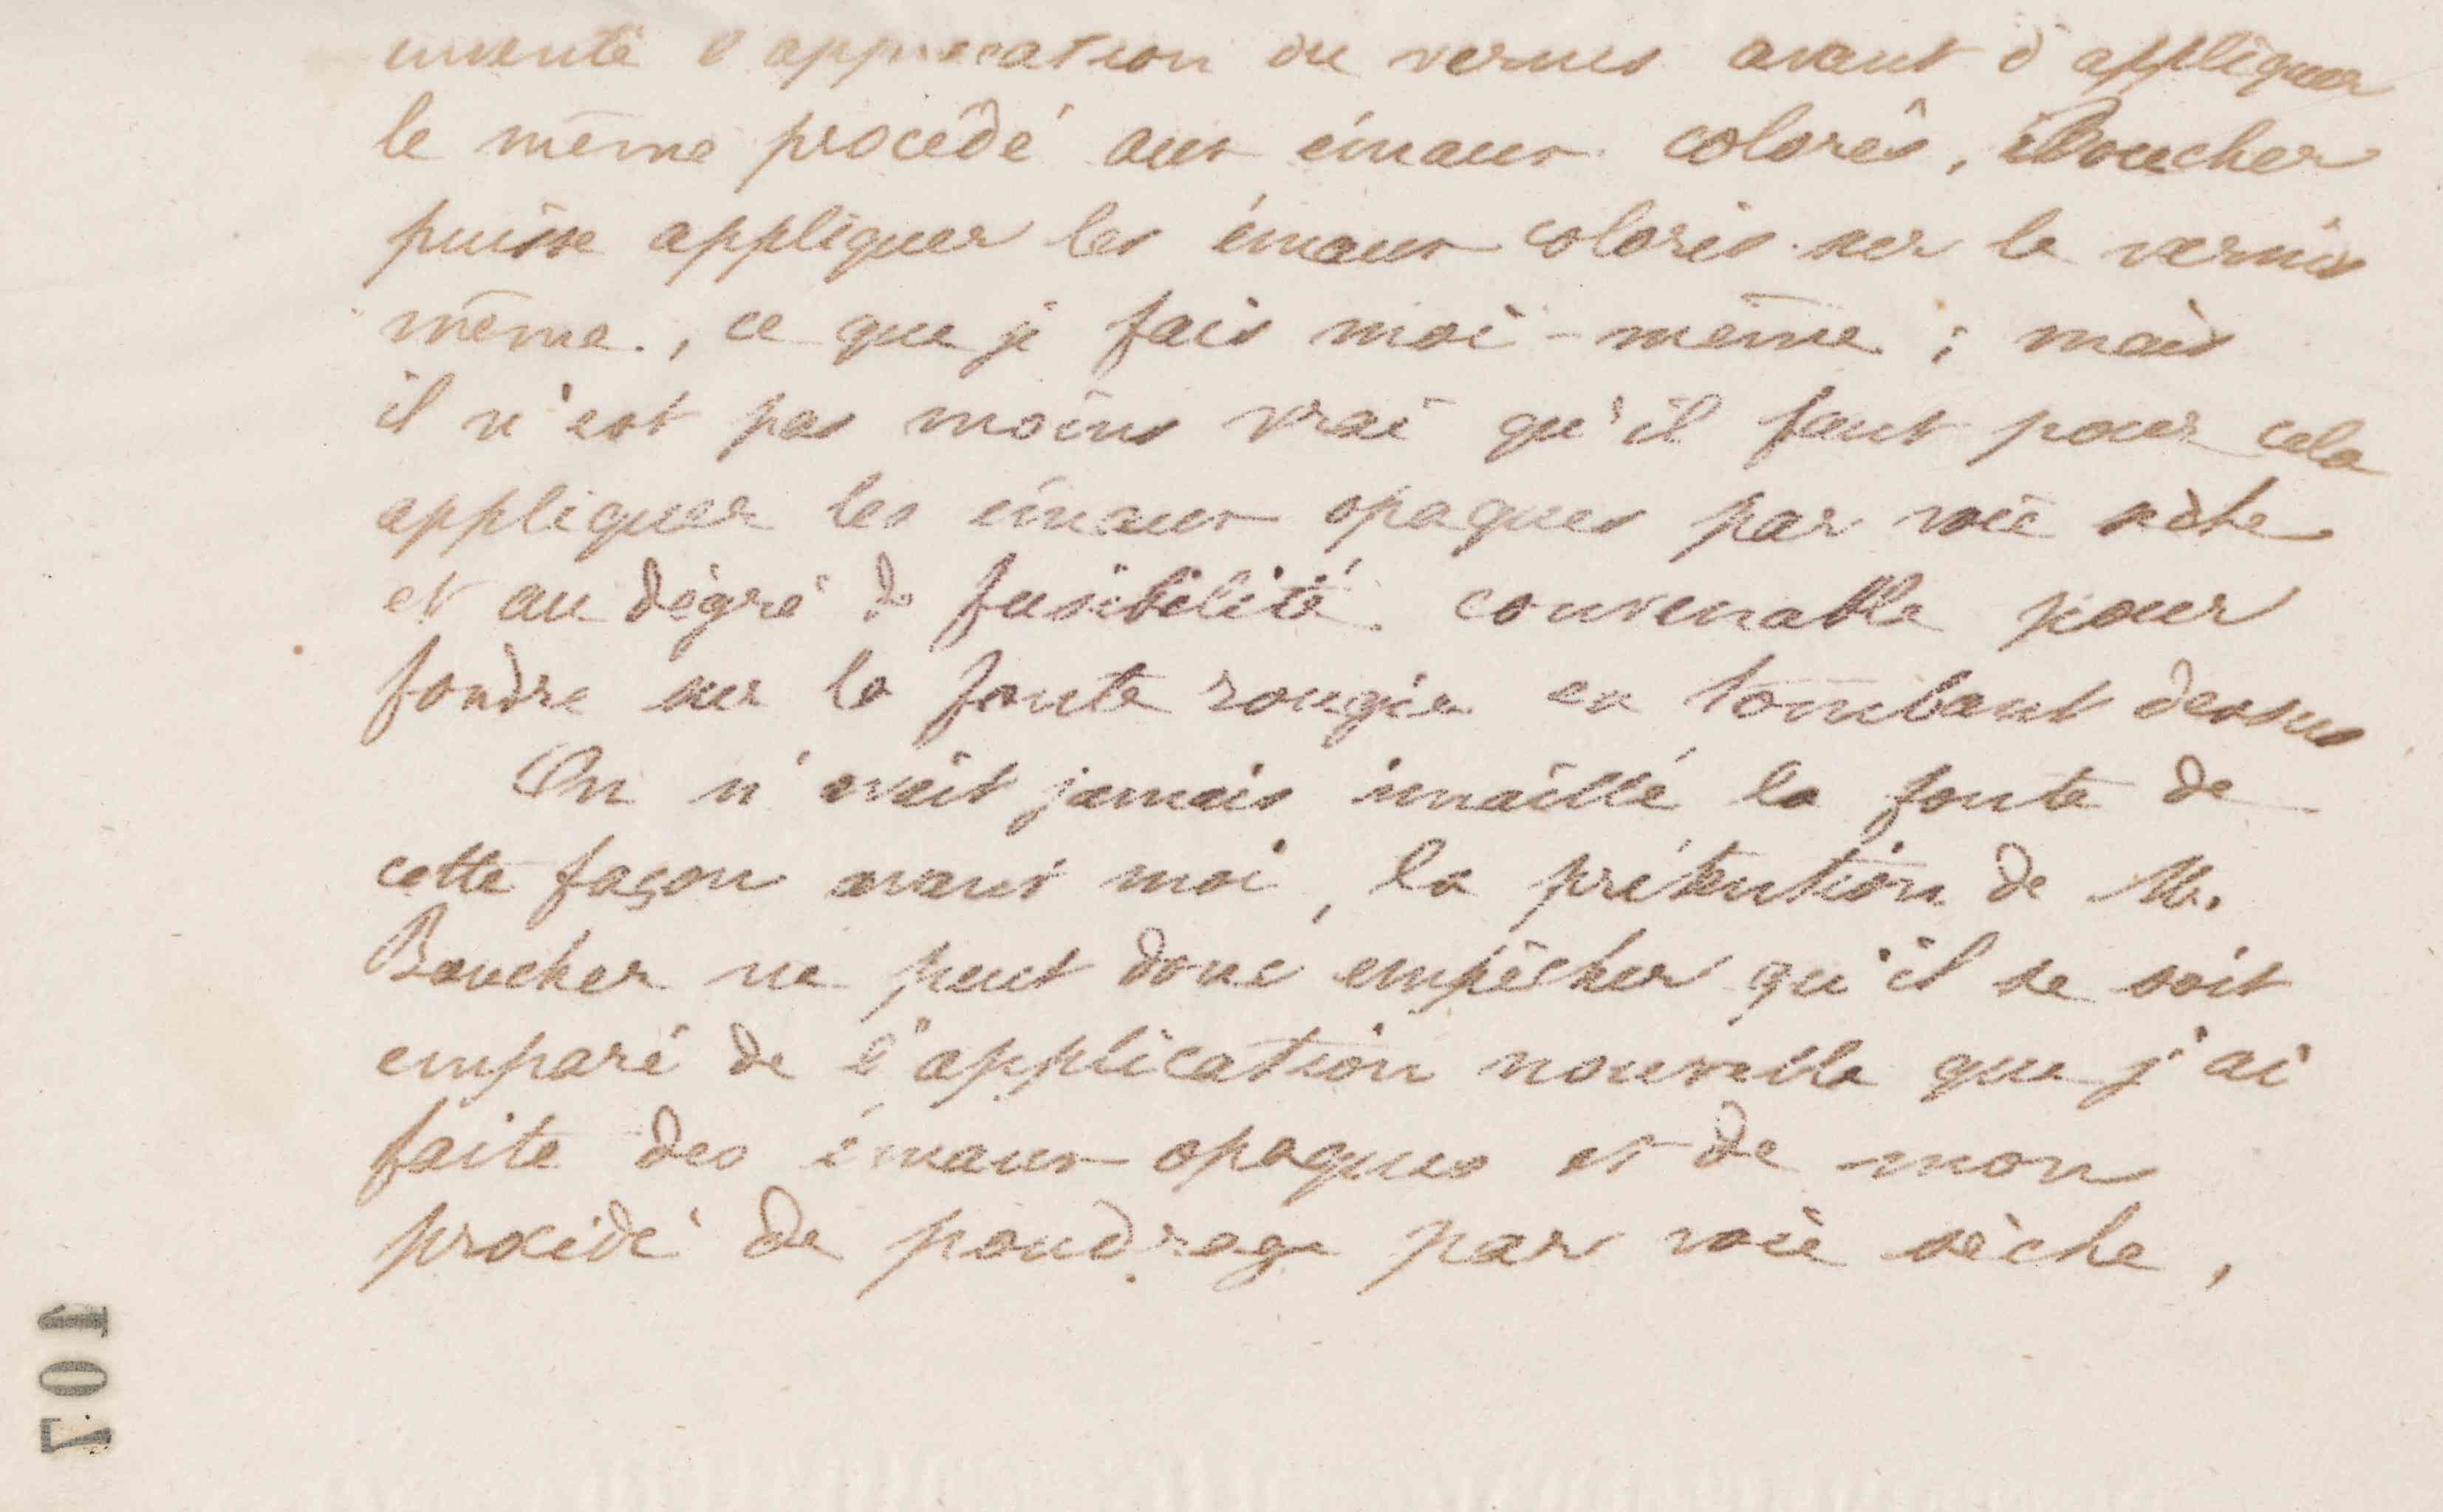 inventé l'application du vernis avant d'appliquer
le même procédé aux émaux colorés, Boucher
puisse appliquer les émaux colorés sur le vernis
même, ce que je fais moi-même ; mais
il n'est pas moins vrai qu'il faut pour cela
appliquer les émaux opaques par voie sèche
et au dégré de fusibilité convenable pour
fondre sur la fonte rougie en tombant dessus
On n'avait jamais émaillé la fonte de
cette façon avant moi, la prétention de M.
Boucher ne peut donc empêcher qu'il se soit
emparé de l'application nouvelle que j'ai
faite des émaux opaques et de mon
procédé de poudrage par voie sèche,
107